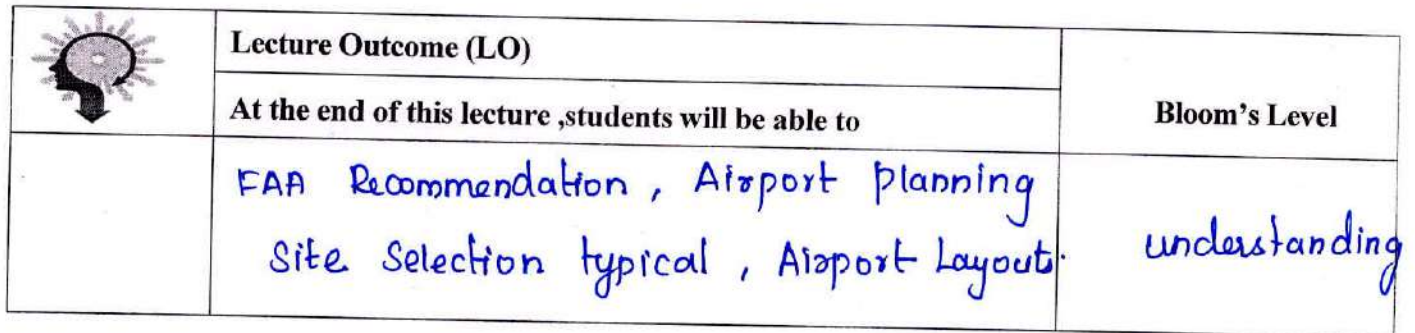 Lecture Outcome (LO)
At the end of this lecture ,students will be able to
Bloom's Level
FAA Recommendation , Airport planning
Site Selection typical , Airport Layouts.
understanding